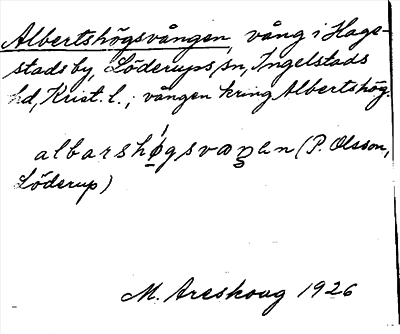 Albertshögsvången, vång i Hage-
stads by, Löderups sn, Ingelstads
hd, Krist. l.; vången kring Albertshög.
albarshǿgsvaŋən (P. Olsson,
Löderup)
M. Areskoug 1926